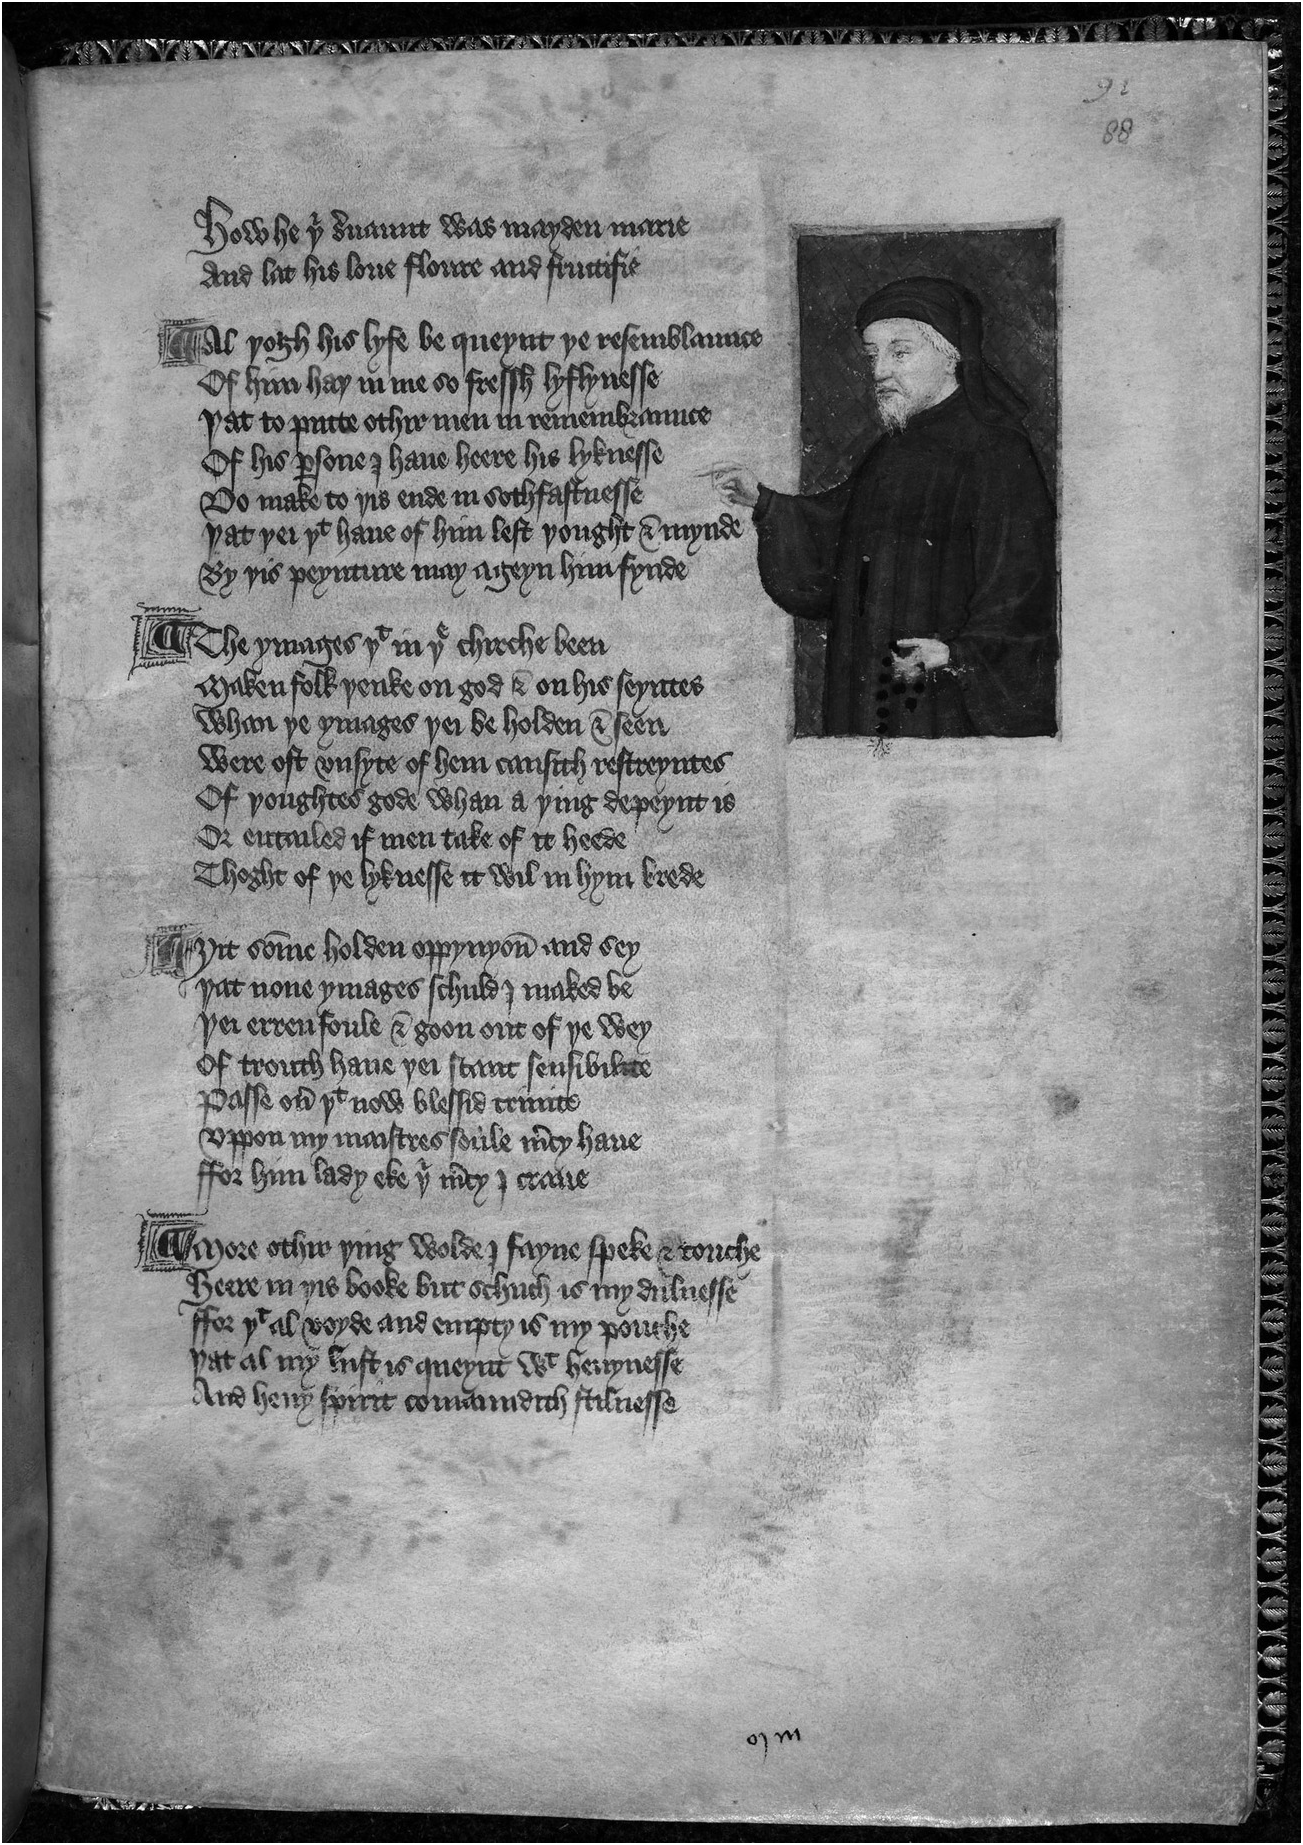 91
88
How he yͬ s̄uaunt was mayden marie
And lat his loue floure and fructifie
Al yogh his lyfe be queynt ye resemblaunce
Of him hay in me so fressh lyflynesse
Yat to putte othir men in remembraunce
Of his ꝑsone I haue heere his lyknesse
Do make to yis ende in sothfastnesse
Yat yei yͭ haue of him left yought & mynde
By yis peynture may ageyn him fynde
The ymages yͭ in yͤ chirche been
Maken folk yenke on god & on his seyntes
Whan ye ymages yei be holden & seen
Were oft vnsyte of hem causith restreyntes
Of youghtes gode whan a ying depeynt is
Or entailed if men take of it heede
Thoght of ye lyknesse it wil in hym brede
Yit som̄e holden oppynyon̄ and sey
Yat none ymages schuld I maked be
Yei erren foule & goon out of ye wey
Of trouth haue yei scant sensibilite
Passe on̄ yͭ now blessid trinite
Vppon my maistres soule m̄cy haue
ffor him lady eke yͬ m̄cy I craue
More othir ying wolde I fayne speke & touche
Heere in yis booke but schuch is my dulnesse
ffor yͭ al voyde and empty is my pouche
Yat al my lust is queynt wͭ heuynesse
And heuy spirit comaundith stilnesse